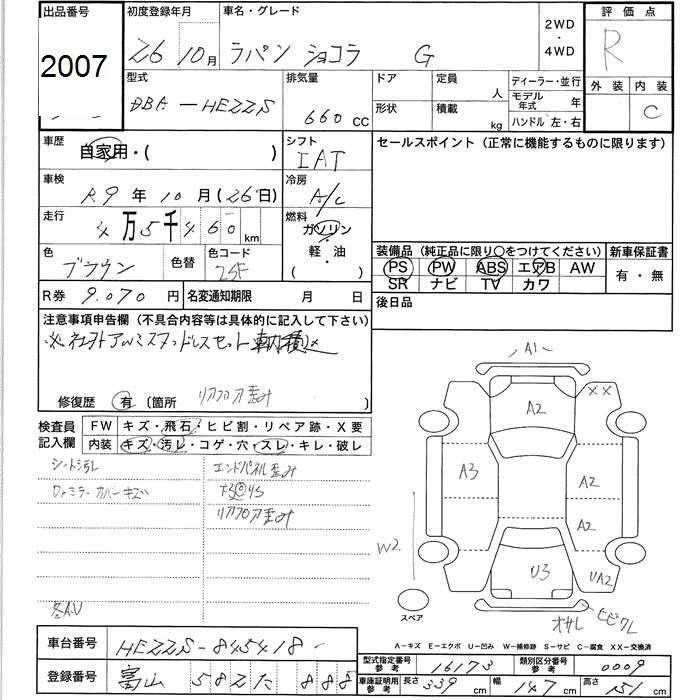 出品番号 初度登録年月 車名・グレード 2WD・4WD 評価点
2007 26 10月 ラパン ショコラ G R
型式 排気量 ドア 定員 人 ディーラー・並行 外装 内装
DBA-HE22S 660cc 形状 積載 kg モデル年式 年 C
ハンドル 左・右
車歴 自家用・( ) シフト IAT セールスポイント (正常に機能するものに限ります)
車検 R9年10月(26日) 冷房 A/C
走行 4万5千460km 燃料 ガソリン・軽・油( )
色 ブラウン 色替 色コード ZSF
装備品 (純正品に限り〇をつけてください) 新車保証書
PS PW ABS エアB AW 有・無
SR ナビ TV カワ
R券 9.070円 名変通知期限 月 日 後日品
注意事項申告欄 (不具合内容等は具体的に記入して下さい)
※社外アルミスタッドレスセット車輌積込
修復歴 有 (箇所 リアフロア歪み )
検査員記入欄 FW キズ・飛石・ヒビ割・リペア跡・X要
内装 キズ・汚レ・コゲ・穴・スレ・キレ・破レ
シート汚れ エンドパネル歪み
Drミラーカバーキズ
リアフロア歪み
各A.U
A1
A2
XX
A3 A2
A2
W2
U3 UA2
スペア オサレ ヒビワレ
A-キズ E-エクボ U-凹み W-補修跡 S-サビ C-腐食 XX-交換済
車台番号 HE22S-845418 型式指定番号 参考 16173 類別区分番号 参考 0009
登録番号 富山 582た 888 車庫証明用 参考 長さ 339cm 幅 147cm 高さ 151cm